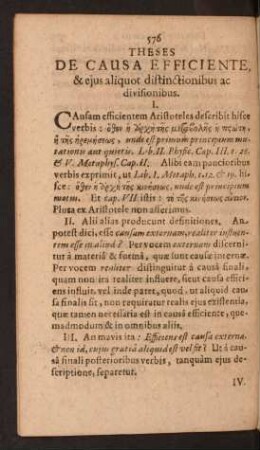 576
THESES
DE CAUSA EFFICIENTE,
& ejus aliquot distinctionibus ac
divisionibus.
I.
CAusam efficientem Aristoteles describit hisce
verbis: ὅθεν ἡ ἀρχὴ τῆς μεταβολῆς ἡ πρώτη,
ἢ τῆς ἠρεμήσεως, unde est primum principium mu-
tationis aut quietis, Lib. II. Physic. Cap. III. t. 28.
& V. Metaphys. Cap. II. Alibi eam paucioribus
verbis exprimit, ut Lib. I. Metaph. t. 12. & 19. hisce:
ὅθεν ἡ ἀρχὴ τῆς κινήσεως, unde est principium
motus. Et cap. VII istis: τὸ τῆς κινήσεως αἴτιον.
Plura ex Aristotele non afferimus.
II. Alii alias producunt definitiones. An-
potest dici, esse causam externam, realiter influen-
tem esse in aliud? Per vocem externam discerni-
tur à materiâ & formâ, quæ sunt causæ internæ.
Per vocem realiter distinguitur à causâ finali,
quam non ita realiter influere, sicut causa effici
ens influit, vel inde patet, quod, ut aliquid cau
sa finalis sit, non requiratur realis ejus existentia,
quæ tamen necessaria est in causâ efficiente, que-
madmodum & in omnibus aliis.
III. An mavis ita: Efficiens est causa externa,
& non id, cujus gratiâ aliquid est vel fit? Ut à cau-
sâ finali posterioribus verbis, tanquàm ejus de-
scriptione, separetur.
IV.